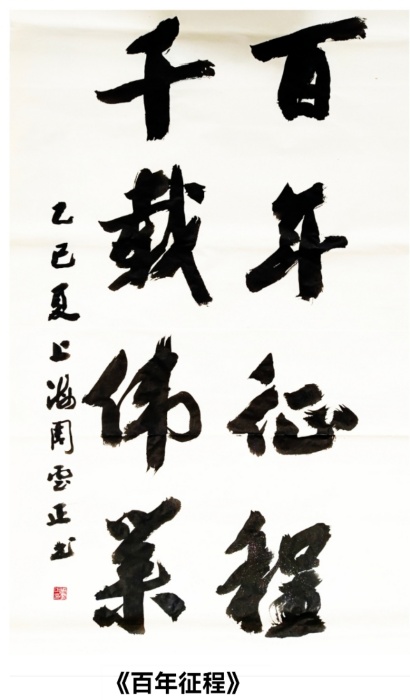 百年征程
千载伟业
乙巳夏上海周雲正书
《百年征程》